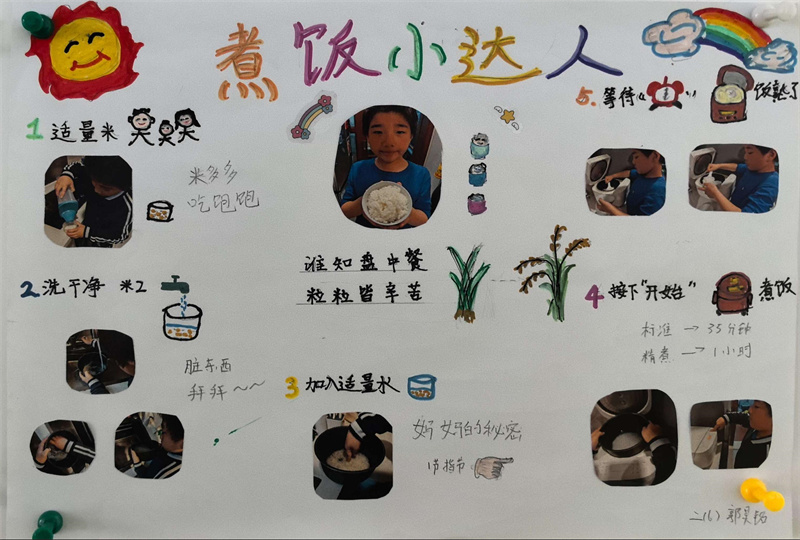 煮饭小达人
1 适量米
米多多
吃饱饱
2 洗干净 米2
脏东西
拜拜~~
谁知盘中餐
粒粒皆辛苦
3 加入适量水
妈妈的秘密
1节指节
4 按下"开始" 煮饭
标准 → 35分钟
精煮 → 1小时
5. 等待 饭熟了
二(6)